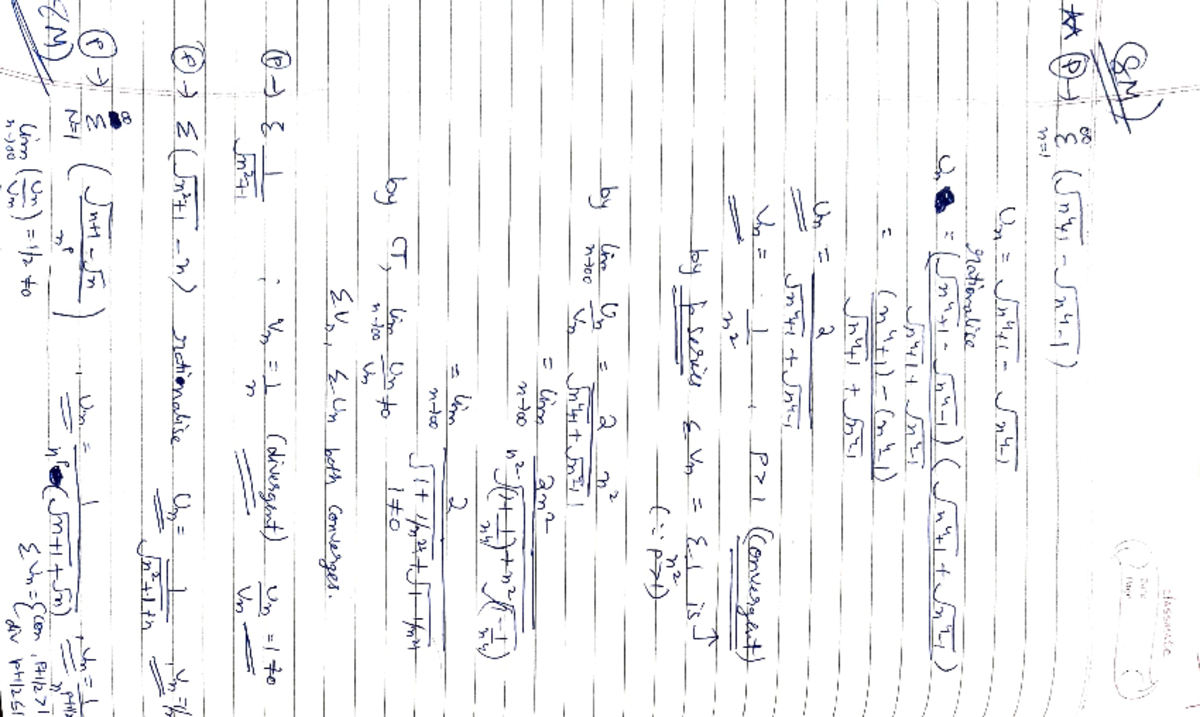 classmate
Date
Page
(8M)
** (P) → ∞ Σ n=1 (√n⁴+1 - √n⁴-1)
Un = √n⁴+1 - √n⁴-1
rationalise
Un = (√n⁴+1 - √n⁴-1)(√n⁴+1 + √n⁴-1) / √n⁴+1 + √n⁴-1
= (n⁴+1) - (n⁴-1) / √n⁴+1 + √n⁴-1
Un = 2 / √n⁴+1 + √n⁴-1
Vn = 1/n² , P>1 (convergent)
by p series ΣVn = Σ 1/n² is
(∵ P>1)
by lim n→∞ Un/Vn = 2 n² / √n⁴+1 + √n⁴-1
= lim n→∞ 2n² / n²√(1+1/n⁴) + n²√(1-1/n⁴)
= lim n→∞ 2 / √1+1/n⁴ + √1-1/n⁴
by CT, lim n→∞ Un/Vn ≠0 1≠0
ΣVn, ΣUn both converges.
(P) → Σ 1/√n²+1 , Vn = 1/n (divergent) Un/Vn = 1 ≠0
(P) → Σ(√n²+1 - n) rationalise Un = 1/√n²+1+n , Vn = 1/
(P) → ∞ Σ n=1 (√n+1 - √n / nᵖ) , Un = 1 / nᵖ(√n+1 + √n) , Vn = 1/
lim n→∞ (Un/Vn) = 1/2 ≠0 ΣVn = {con, P+1/2>1
div P+1/2≤1